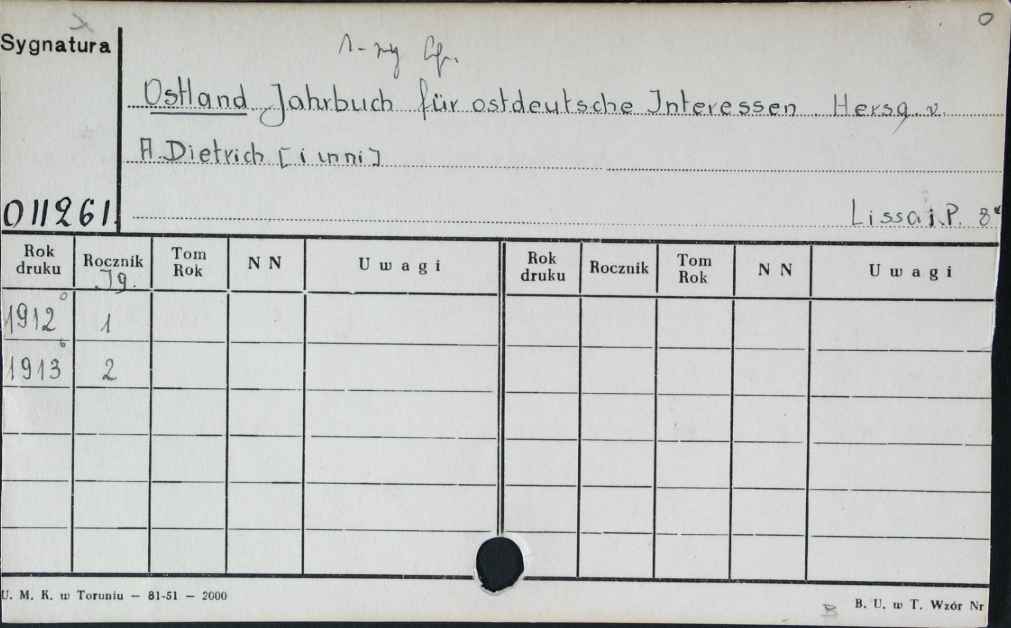 0
Sygnatura
Ostland Jahrbuch für ostdeutsche Interessen. Hersg. v.
A. Dietrich [i inni]
011261.
Lissa i. P. 8°
Rok druku Rocznik Tom Rok N N Uwagi Rok druku Rocznik Tom Rok N N Uwagi
Jg.
1912 1
1913 2
U. M. K. w Toruniu — 81-51 — 2000
B. U. w T. Wzór Nr